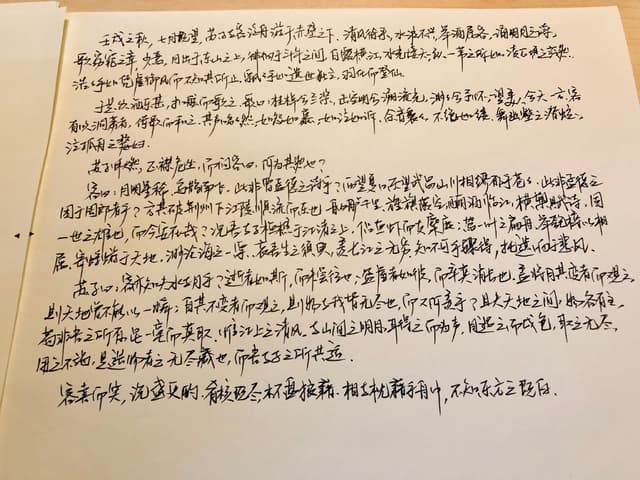 壬戌之秋,七月既望,苏子与客泛舟游于赤壁之下。清风徐来,水波不兴。举酒属客,诵明月之诗,
歌窈窕之章。少焉,月出于东山之上,徘徊于斗牛之间。白露横江,水光接天。纵一苇之所如,凌万顷之茫然。
浩浩乎如凭虚御风而不知其所止,飘飘乎如遗世独立,羽化而登仙。
于是饮酒乐甚,扣舷而歌之。歌曰:桂棹兮兰桨,击空明兮溯流光,渺渺兮予怀,望美人兮天一方。客
有吹洞箫者,倚歌而和之,其声呜呜然,如怨如慕,如泣如诉,余音袅袅,不绝如缕,舞幽壑之潜蛟,
泣孤舟之嫠妇。
苏子愀然,正襟危坐,而问客曰:何为其然也?
客曰:月明星稀,乌鹊南飞,此非曹孟德之诗乎?西望夏口,东望武昌,山川相缪,郁乎苍苍,此非孟德之
困于周郎者乎?方其破荆州,下江陵,顺流而东也,舳舻千里,旌旗蔽空,酾酒临江,横槊赋诗,固
一世之雄也,而今安在哉?况吾与子渔樵于江渚之上,侣鱼虾而友麋鹿;驾一叶之扁舟,举匏樽以相
属,寄蜉蝣于天地,渺沧海之一粟。哀吾生之须臾,羡长江之无穷。知不可乎骤得,托遗响于悲风。
苏子曰:客亦知夫水与月乎?逝者如斯,而未尝往也;盈虚者如彼,而卒莫消长也,盖将自其变者而观之,
则天地曾不能以一瞬;自其不变者而观之,则物与我皆无尽也,而又何羡乎?且夫天地之间,物各有主,
苟非吾之所有,虽一毫而莫取。惟江上之清风,与山间之明月,耳得之而为声,目遇之而成色,取之无尽,
用之不竭,是造物者之无尽藏也,而吾与子之所共适。
客喜而笑,洗盏更酌。肴核既尽,杯盘狼藉。相与枕藉乎舟中,不知东方之既白。